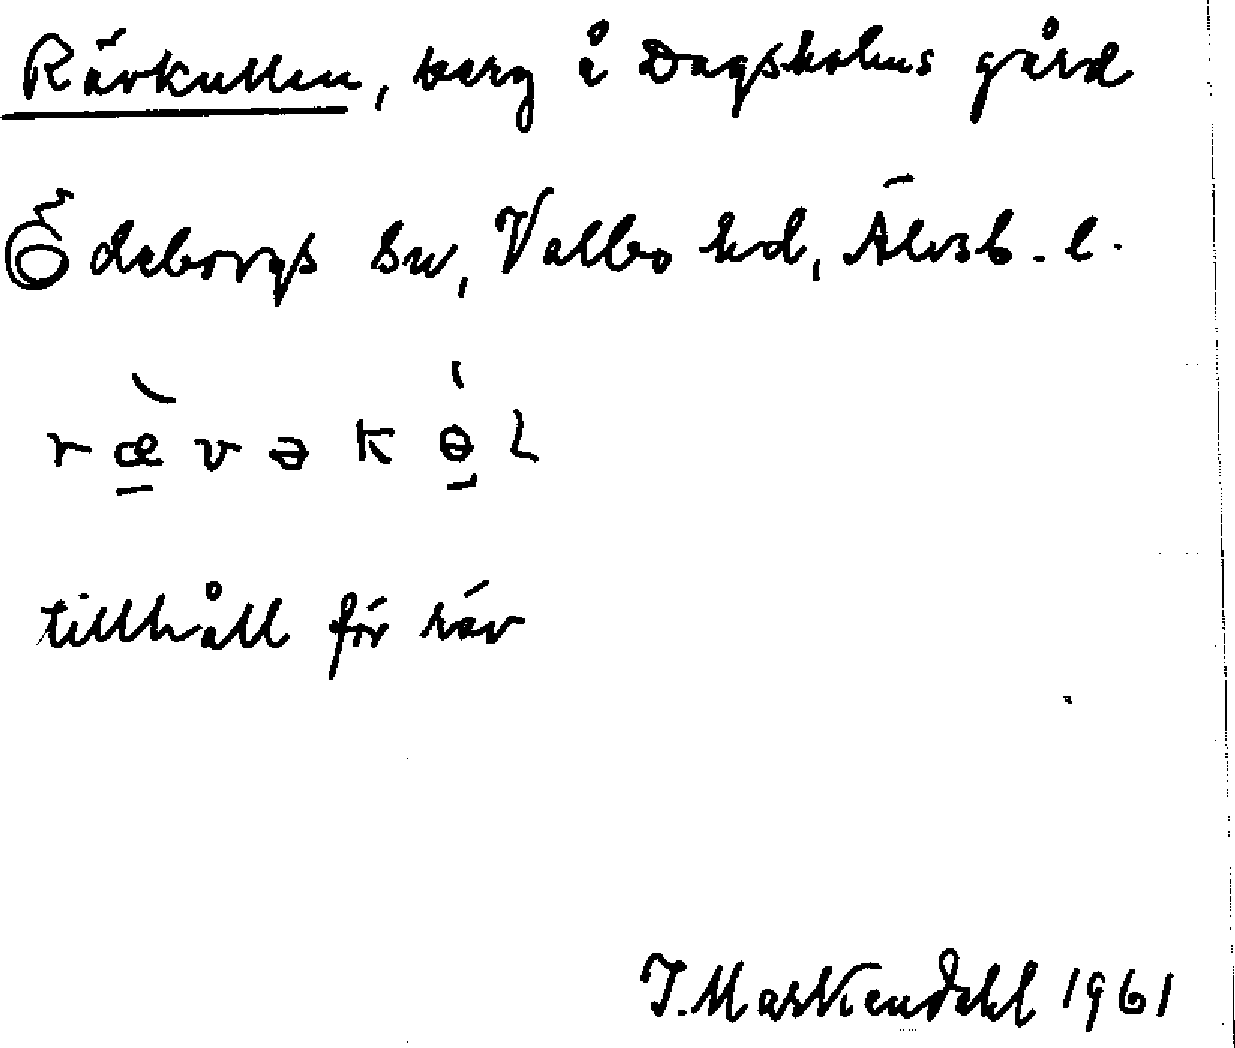 Rävkullen, berg å Dagsholms gård
Ödeborgs sn, Valbo hd, Älvsb. l.
ræ̀vəkɵ̀l
tillhåll för räv
J. Markendahl 1961